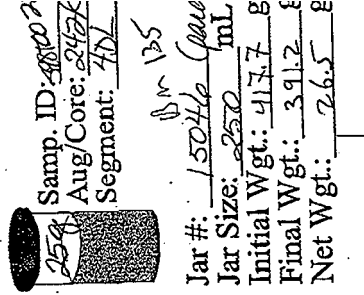 25g
Samp. ID: S98T002
Aug/Core: 242K
Segment: 40L
Bm 135
Jar #: 15046
Jar Size: 250 mL
Initial Wgt.: 417.7 g
Final Wgt.: 391.2 g
Net Wgt.: 26.5 g